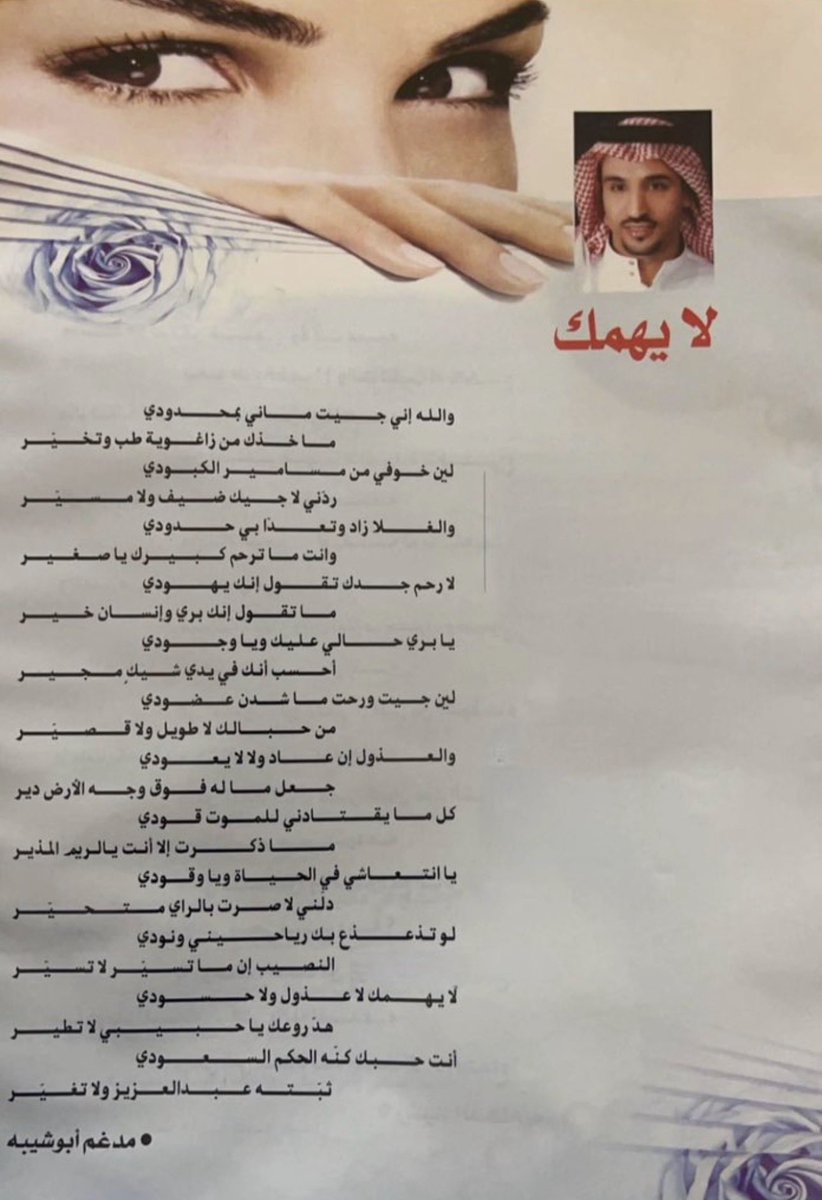 لا يهمك
والله إني جيت ماني بمحدودي
ما خذك من زاغوية طب وتخيّر
لين خوفي من مسامير الكبودي
ردّني لا جيك ضيف ولا مسيّر
والغلا زاد وتعدّا بي حدودي
وانت ما ترحم كبيرك يا صغير
لا رحم جدك تقول إنك يهودي
ما تقول إنك بري وإنسان خير
يا بري حالي عليك ويا وجودي
أحسب أنك في يدي شيكٍ مجير
لين جيت ورحت ما شدن عضودي
من حبالك لا طويل ولا قصيّر
والعذول إن عاد ولا لا يعودي
جعل ما له فوق وجه الأرض دير
كل ما يقتادني للموت قودي
ما ذكرت إلا أنت يالريم المذير
يا انتعاشي في الحياة ويا وقودي
دلّني لا صرت بالراي متحيّر
لو تذعذع بك رياحيني ونودي
النصيب إن ما تسيّر لا تسيّر
لا يهمك لا عذول ولا حسودي
هدّ روعك يا حبيبي لا تطير
أنت حبك كنّه الحكم السعودي
ثبّته عبدالعزيز ولا تغيّر
● مدغم أبوشيبه